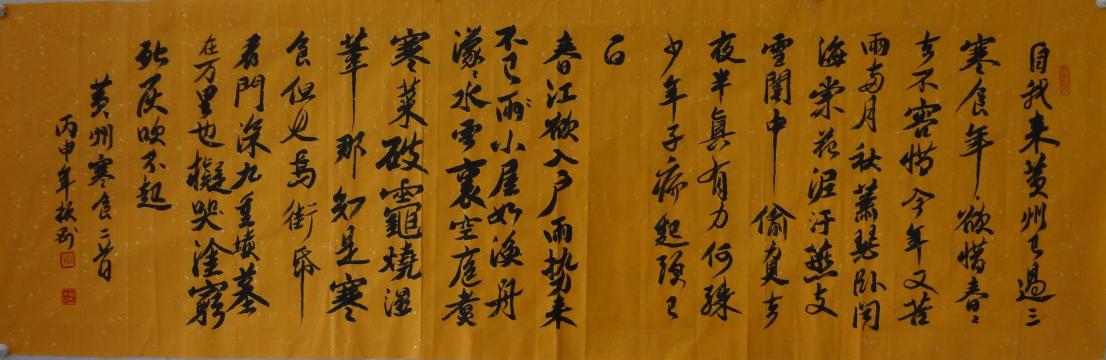 自我来黄州已過三
寒食年〻欲惜春〻
去不容惜今年又苦
雨两月秋蕭瑟卧闻
海棠花泥汙燕支
雪闇中偷負去
夜半真有力何殊
少年子病起頭已
白
春江欲入户雨势来
不已雨小屋如漁舟
濛〻水雲裏空庖煮
寒菜破竈燒湿
葦那知是寒
食但見烏銜帋
君門深九重墳墓
在万里也擬哭塗窮
死灰吹不起
黄州寒食二首
丙申年振